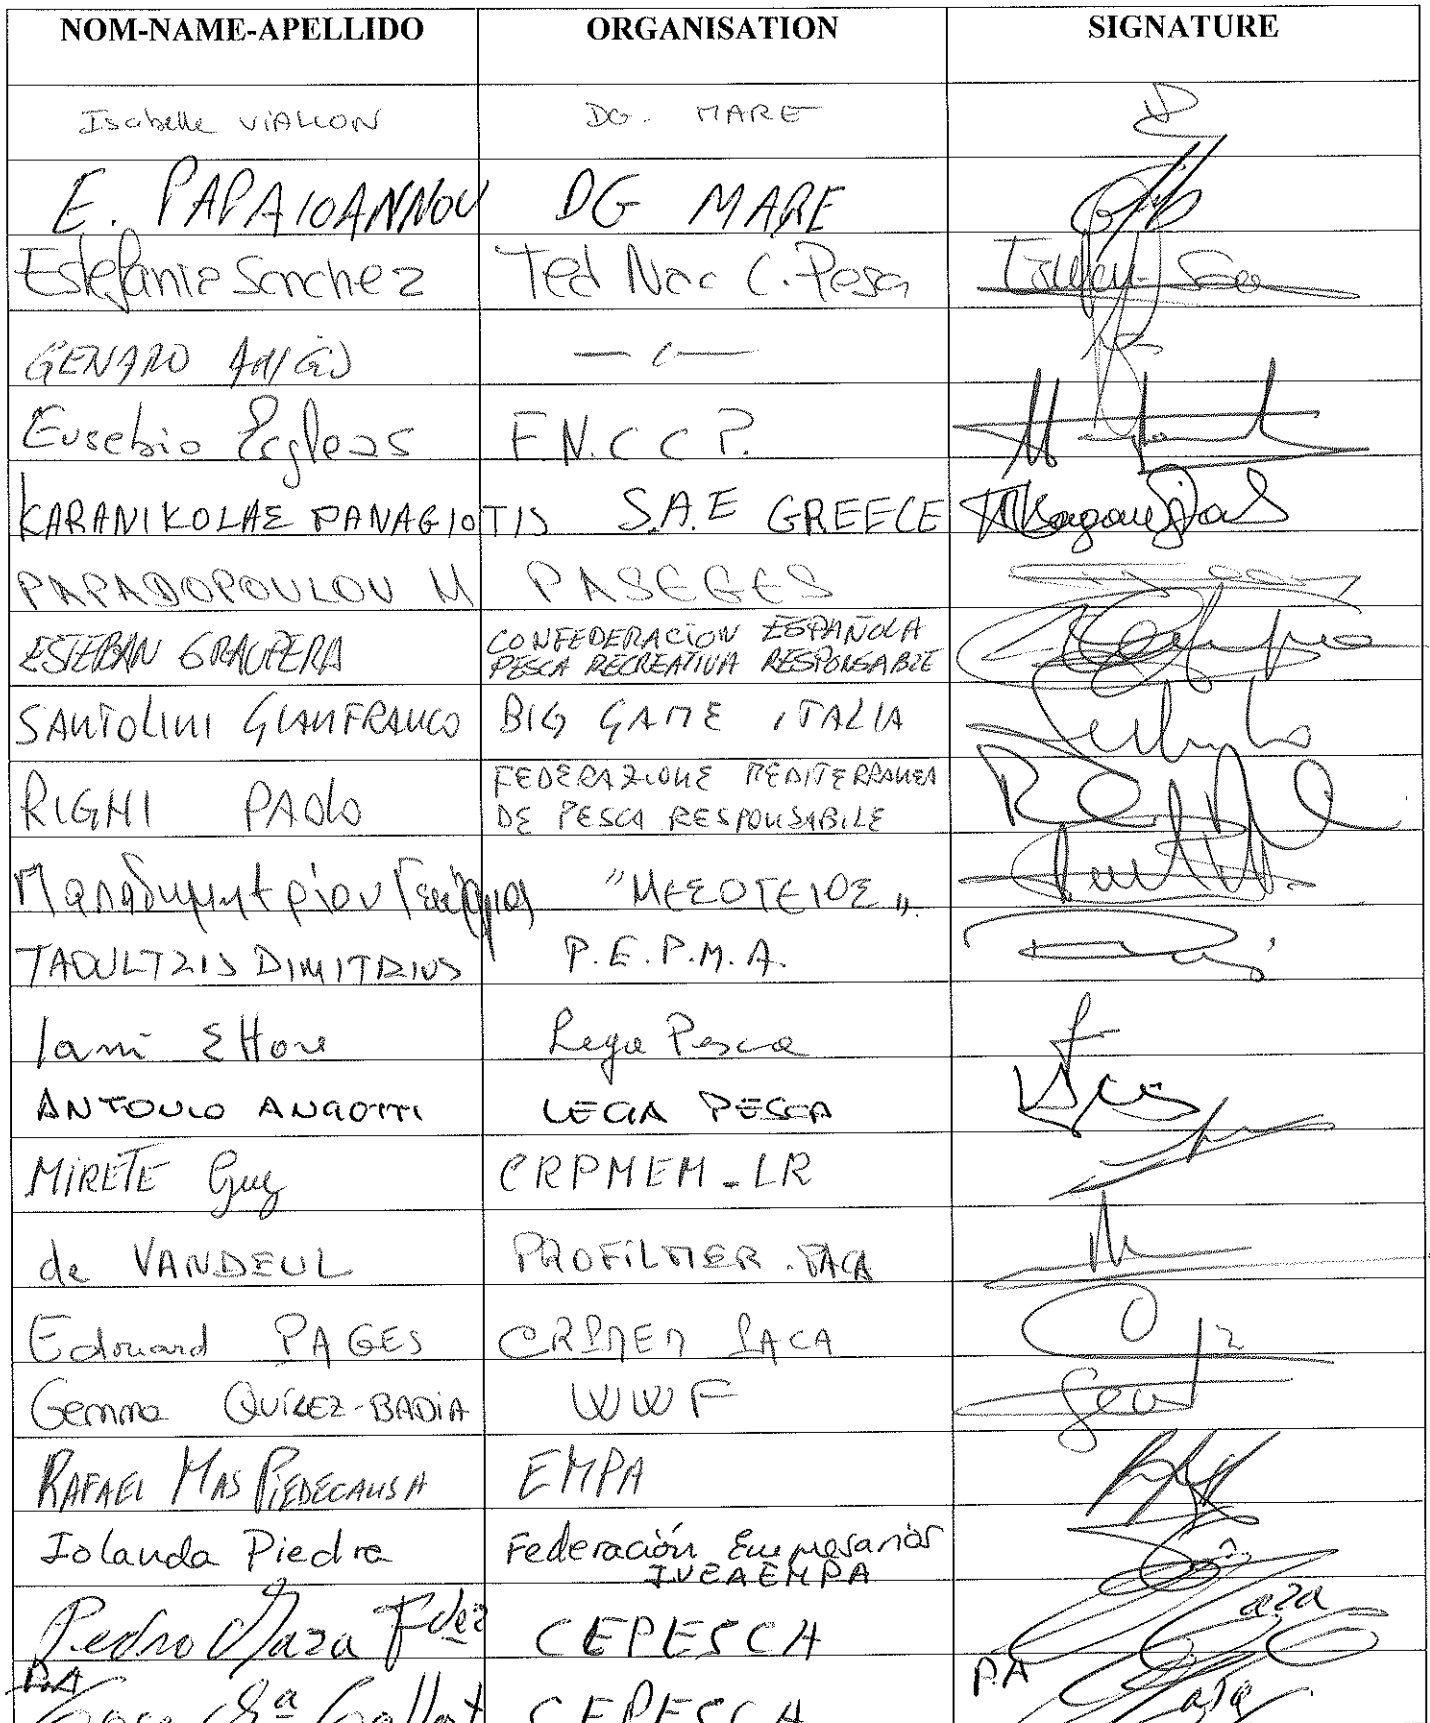 NOM-NAME-APELLIDO ORGANISATION SIGNATURE
Isabelle VIALLON DG. MARE
E. PAPAIOANNOU DG MARE
Estefanía Sanchez Fed Nac C. Pesca
GENARO AMIGO — ‹ —
Eusebio Esgleas F.N.C.C.P.
KARANIKOLAS PANAGIOTIS S.A.E GREECE
PAPADOPOULOU M PASEGES
ESTEBAN GRAUPERA CONFEDERACION ESPAÑOLA
PESCA RECREATIVA RESPONSABLE
SANTOLINI GIANFRANCO BIG GAME ITALIA
RIGHI PAOLO FEDERAZIONE MEDITERRANEA
DE PESCA RESPONSABILE
Παπαδημητρίου "ΜΕΣΟΓΕΙΟΣ"
TAOULTZIS DIMITRIOS P.E.P.M.A.
Iani Ettore Lega Pesca
ANTONIO ANGOTTI LEGA PESCA
MIRETE Guy CRPMEM-LR
de VANDEUL PROFILMER.PACA
Edouard PAGES CRPMEM PACA
Gemma QUÍLEZ-BADIA WWF
RAFAEL MAS PIEDECAUSA EMPA
Iolanda Piedra Federación Empresarios
IVEAEMPA
Pedro Maza Fdez CEPESCA aza
P.A P.A
Jose Mª Gallart CEPESCA